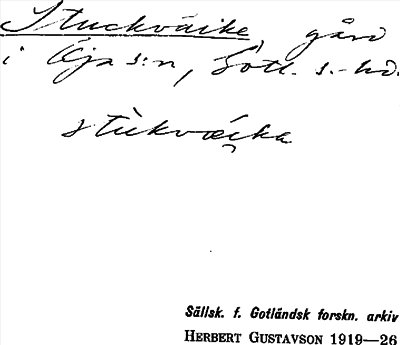 Stuckväike, gård
i Öja s:n, Gotl. s.-hd.
stùkvæíka
Sällsk. f. Gotländsk forskn. arkiv
HERBERT GUSTAVSON 1919—26